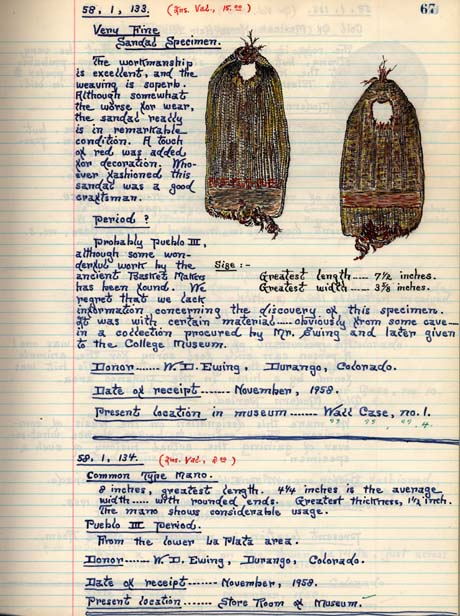 58, 1, 133. (Ins. Val., 15.00) 67
Very Fine
Sandal Specimen.
The workmanship
is excellent, and the
weaving is superb.
Although somewhat
the worse for wear,
the sandal really
is in remarkable
condition. A touch
of red was added
for decoration. Who-
ever fashioned this
sandal was a good
craftsman.
Period ?
Probably Pueblo III,
although some won-
derful work by the
ancient Basket Makers
has been found. We
regret that we lack
Size :-
Greatest length ---- 7 1/2 inches.
Greatest width ---- 3 3/8 inches.
information concerning the discovery of this specimen.
It was with certain material ---- obviously from some cave --
in a collection procured by Mr. Ewing and later given
to the College Museum.
Donor ---- W. D. Ewing, Durango, Colorado.
Date of receipt ------ November, 1958.
Present location in museum ------ Wall Case, no. 1.
" " " 4.
58, 1, 134. (Ins. Val., 2.00)
Common Type Mano.
8 inches, greatest length. 4 1/4 inches is the average
width ---- with rounded ends. Greatest thickness, 1 1/2 inch.
The mano shows considerable usage.
Pueblo III Period.
From the lower La Plata area.
Donor ---- W. D. Ewing, Durango, Colorado.
Date of receipt ------ November, 1958.
Present location ------ Store Room of Museum.